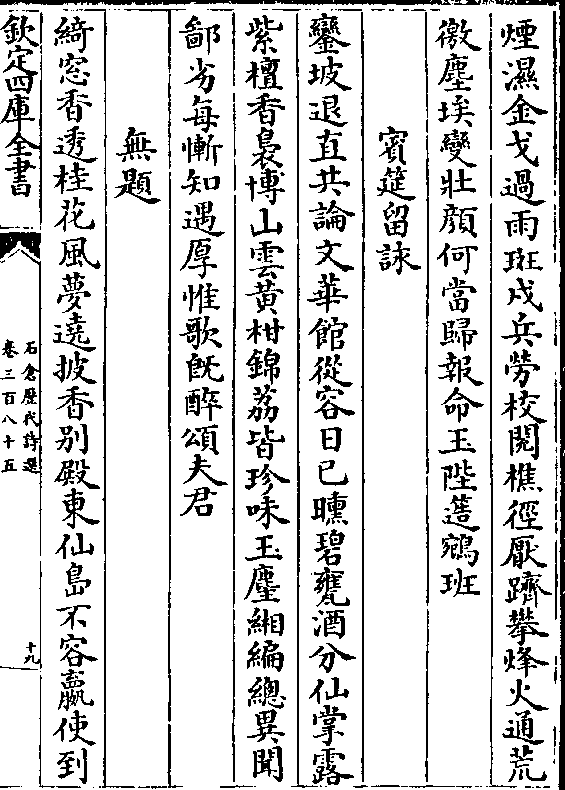 煙濕金戈過雨斑戍兵勞校閱樵徑厭躋攀烽火通荒
徼塵埃變壯顔何當歸報命玉陛簉鵷班
賓筵留詠
鑾坡退直共論文華館從容日已曛碧甕酒分仙掌露
紫檀香裊博山雲黄柑錦荔皆珍味玉麈緗編總異聞
鄙劣每慚知遇厚惟歌旣醉頌夫君
無題
綺窓香透桂花風夢遶披香别殿東仙島不容嬴使到
欽定四庫全書
石倉歷代詩選
卷三百八十五
十九